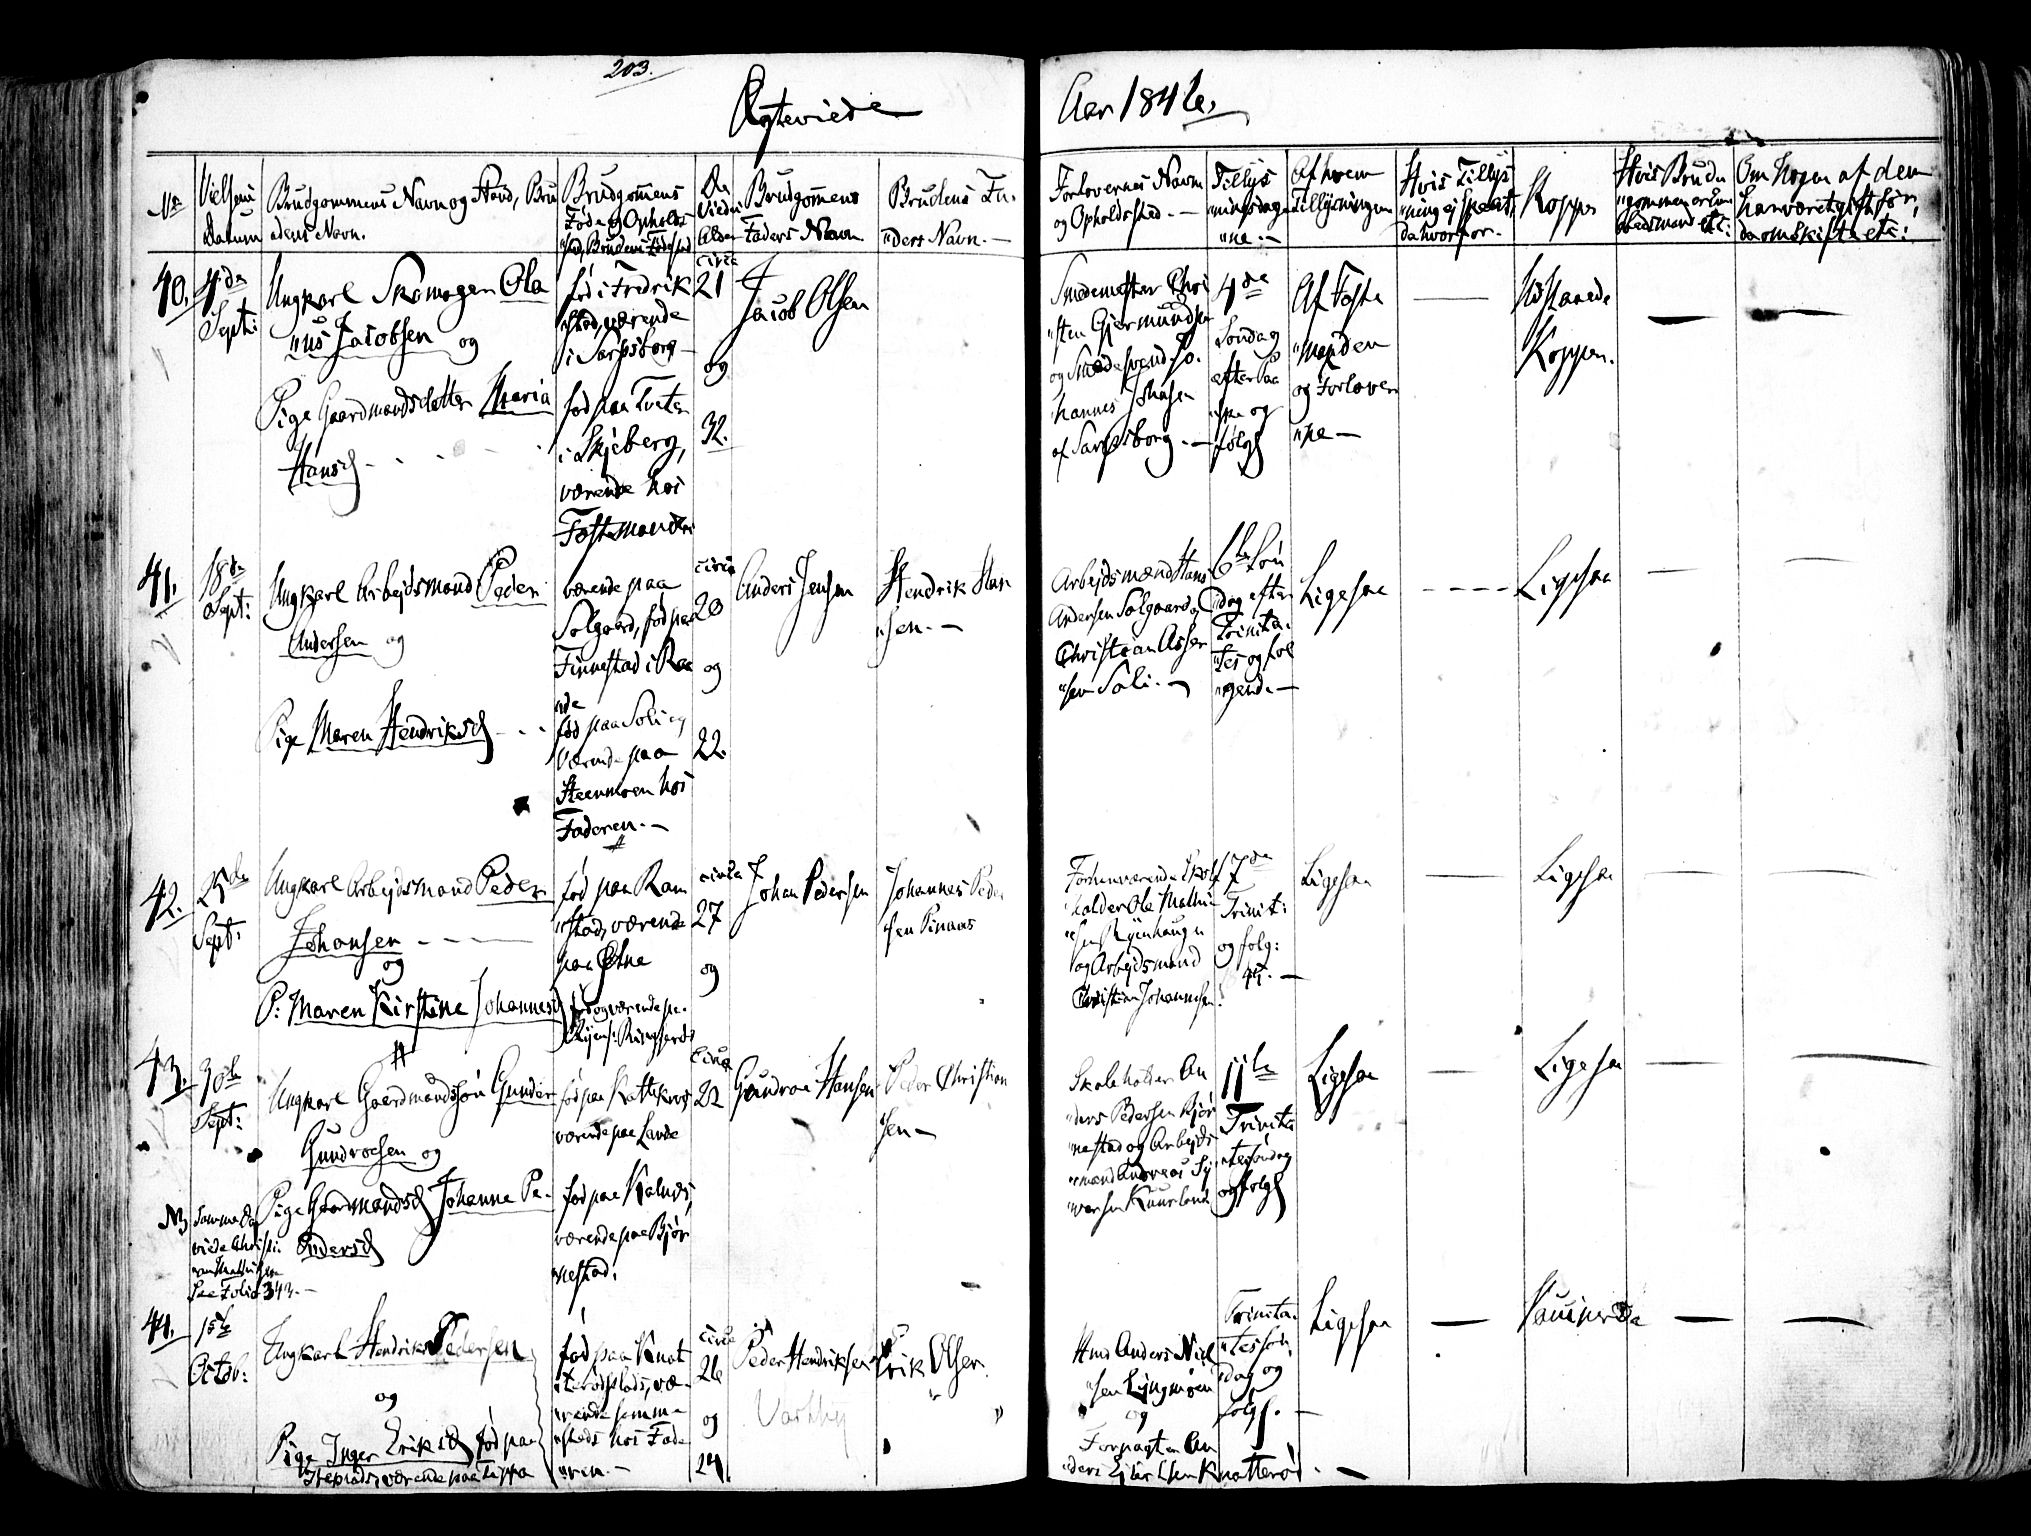 203.
Ægteviede
Aar 1846.
No
Vielsens Datum
Brudgommens Navn og Stand, Bru
dens Navn.
Brudgomens
Føde og Opholds
sted, Brudens Fødested
Da
Viedes
Alder
Brudgomens
Faders Navn
Brudens Fa
ders Navn.
Forlovernes Navn
og Opholdssted.
Tillys
ningsdage
ne.
Af hvem
Tillysningen
Hvis Tillys
ning ej skeet,
da hvorfor.
Kopper
Hvis Brud
gommen er
etc:
Om Nogen af dem
har været gift før,
da om skifte etc:
40.
4de
Sept:
Ungkarl Skomager Ola
us Jacobsen og
Pige Gaardmandsdatter Maria
Hansd
fød i Fredrik
stad, værende
i Sarpsborg
fød paa Tveter
i Skjeberg,
værende hos
Fæstemanden
circa
21
og
32.
Jacob Olsen
Smedemester Chri
sten Gjermundsen
og Smedesvend Jo
hannes Johnsen
af Sarpsborg.
4de
Søndag
efter Paa
ske og
følg
Af Fæste
manden
og Forlover
ne
Vist havede
Kopper.
41.
18de
Sept:
Ungkarl Arbejdsmand Peder
Andersen og
Pige Maren Hendriksd
værende paa
Solgaard, fød paa
Finnestad i Raa
de
fød paa Soli og
værende paa
Steenmoen hos
Faderen.
circa
20
og
22.
Anders Jensen
Hendrik Han
sen.
Arbejdsmænd Hans
Andersen Solgaard og
Christian Asser
sen Soli.
6te Søn
dag efter
Trinita
tes ogføl
gende
Ligesaa
Ligesaa
42.
25de
Sept:
Ungkarl Arbejdsmand Peder
Johansen
og
P: Maren Kirstine Johannesd
fød paa Ram
stad, værende
paa Ødne
fød og værende paa
circa
27
og
Johan Pedersen
Johannes Peder
sen Pinaas
Forhenværende Skole
holder Ole Mathi
sen
og Arbejdsmand
Christian Johannesen.
7de
Trinit:
og følg:
Ligesaa
Ligesaa
43.
30te
Sept:
Ungkarl Gaardmandssøn Gunder
Gundrosen og
Pige Gaardmandsd Johanne Pe
dersd
fød paa
værende paa Lande
fød paa Kalnæs,
værende paa Bjør
nestad.
Circa
22
Gundroe Hansen
Peder Christian
sen
Skoleholder An
ders Pedersen Bjør
nestad og Arbejds
mand Andreas Sy
versen Kuurland
11te
Trinita
tes Søndag
og følg
Ligesaa
Ligesaa
NB
Samme Dag
viede Christi
an Mathisen
See Folio 343.
44.
15de
Octob:
Ungkarl Hendrik Pedersen
og
Pige Inger Eriksd fød paa
værende paa
fød paa Knat
terødsplads, væ
rende samme
steds hos Fade
ren.
circa
26
og
24.
Peder Hendriksen
Erik Olsen
Hmd Anders Niel
sen Lyngmøen
og
Forpagter An
ders Knatterød.
Trinita
tes Søn
dag og
følg.
Ligesaa
Vaccinerede